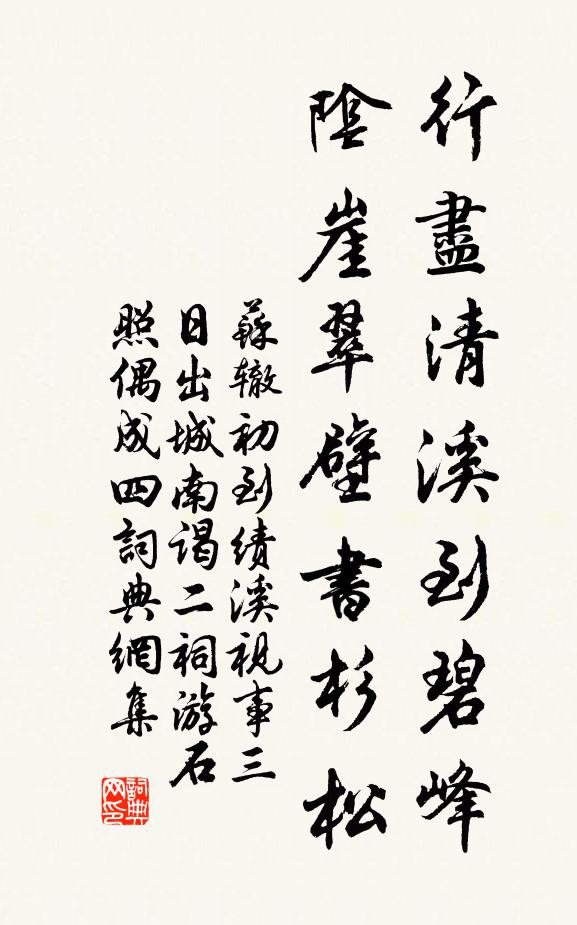 行盡清溪到碧峰
陰崖翠壁書杉松
蘇辙初到績溪視事三
日出城南谒二祠游石
照偶成四詞典網集
詞典网印